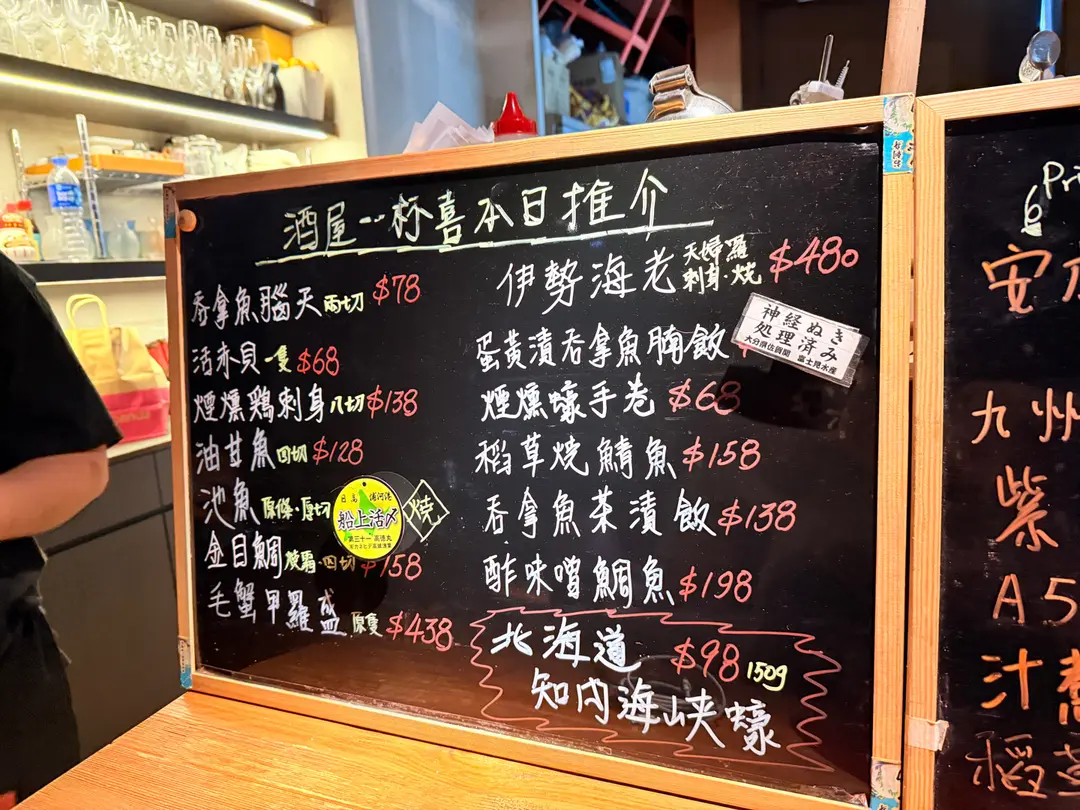 酒屋一杯喜本日推介
吞拿魚腦天 兩切 $78
活赤貝 一隻 $68
煙燻鶏刺身 八切 $138
油甘魚 四切 $128
池魚 原條·厚切
金目鯛 四切 $158
毛蟹甲羅盛 原隻 $438
日高 浦河港
船上活〆
第三十一 高徳丸
焼
伊勢海老 天婦羅 刺身·燒 $480
蛋黃漬吞拿魚腩飯
神経ぬき
処理済み
大分県佐賀関 富士見水産
煙燻蠔手卷 $68
稻草燒鯖魚 $158
吞拿魚茶漬飯 $138
酢味噌鯛魚 $198
北海道 $98 150g
知内海峡蠔
Pri
6
安
九州
紫
A5
汁煮
稻草